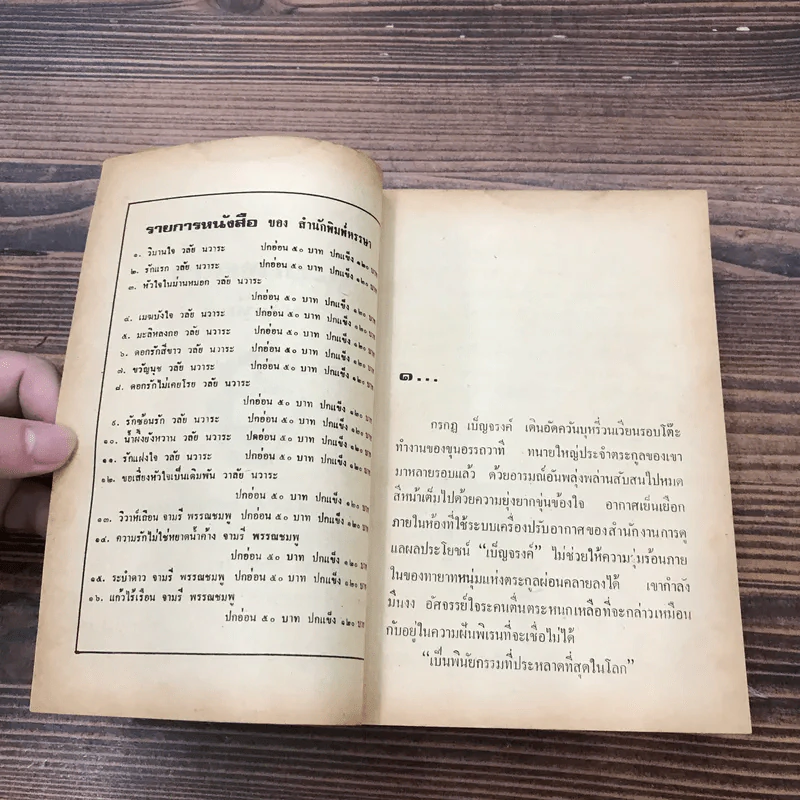 รายการหนังสือ ของ สำนักพิมพ์หรรษา
๑. วิบานใจ วลัย นวาระ ปกอ่อน ๕๐ บาท ปกแข็ง ๑๒๐ บาท
๒. รักแรก วลัย นวาระ ปกอ่อน ๕๐ บาท ปกแข็ง ๑๒๐ บาท
๓. หัวใจในม่านหมอก วลัย นวาระ
ปกอ่อน ๕๐ บาท ปกแข็ง ๑๒๐ บาท
๔. เมฆบังใจ วลัย นวาระ ปกอ่อน ๕๐ บาท ปกแข็ง ๑๒๐ บาท
๕. มะลิหลงกอ วลัย นวาระ ปกอ่อน ๕๐ บาท ปกแข็ง ๑๒๐ บาท
๖. ดอกรักสีขาว วลัย นวาระ ปกอ่อน ๕๐ บาท ปกแข็ง ๑๒๐ บาท
๗. ขวัญนุช วลัย นวาระ ปกอ่อน ๕๐ บาท ปกแข็ง ๑๒๐ บาท
๘. ดอกรักไม่เคยโรย วลัย นวาระ
ปกอ่อน ๕๐ บาท ปกแข็ง ๑๒๐ บาท
๙. รักซ้อนรัก วลัย นวาระ ปกอ่อน ๕๐ บาท ปกแข็ง ๑๒๐ บาท
๑๐. น้ำผึ้งยังหวาน วลัย นวาระ ปกอ่อน ๕๐ บาท ปกแข็ง ๑๒๐ บาท
๑๑. รักแฝงใจ วลัย นวาระ ปกอ่อน ๕๐ บาท ปกแข็ง ๑๒๐ บาท
๑๒. ขอเสี่ยงหัวใจเป็นเดิมพัน วาลัย นวาระ
ปกอ่อน ๕๐ บาท ปกแข็ง ๑๒๐ บาท
๑๓. วิวาห์เถื่อน จามรี พรรณชมพู ปกอ่อน ๕๐ บาท ปกแข็ง ๑๒๐ บาท
๑๔. ความรักไม่ใช่หยาดน้ำค้าง จามรี พรรณชมพู
ปกอ่อน ๕๐ บาท ปกแข็ง ๑๒๐ บาท
๑๕. ระบำดาว จามรี พรรณชมพู ปกอ่อน ๕๐ บาท ปกแข็ง ๑๒๐ บาท
๑๖. แก้วไร้เรือน จามรี พรรณชมพู
ปกอ่อน ๕๐ บาท ปกแข็ง ๑๒๐ บาท
๑...
กรกฎ เบ็ญจรงค์ เดินอัดควันบุหรี่วนเวียนรอบโต๊ะ
ทำงานของขุนอรรถวาที ทนายใหญ่ประจำตระกูลของเขา
มาหลายรอบแล้ว ด้วยอารมณ์อันพลุ่งพล่านสับสนไปหมด
สีหน้าเต็มไปด้วยความยุ่งยากขุ่นข้องใจ อากาศเย็นเยือก
ภายในห้องที่ใช้ระบบเครื่องปรับอากาศของสำนักงานการดู
แลผลประโยชน์ “เบ็ญจรงค์” ไม่ช่วยให้ความรุ่มร้อนภาย
ในของทายาทหนุ่มแห่งตระกูลผ่อนคลายลงได้ เขากำลัง
มึนงง อัศจรรย์ใจระคนตื่นตระหนกเหลือที่จะกล่าวเหมือน
กับอยู่ในความฝันพิเรนที่จะเชื่อไม่ได้
“เป็นพินัยกรรมที่ประหลาดที่สุดในโลก”